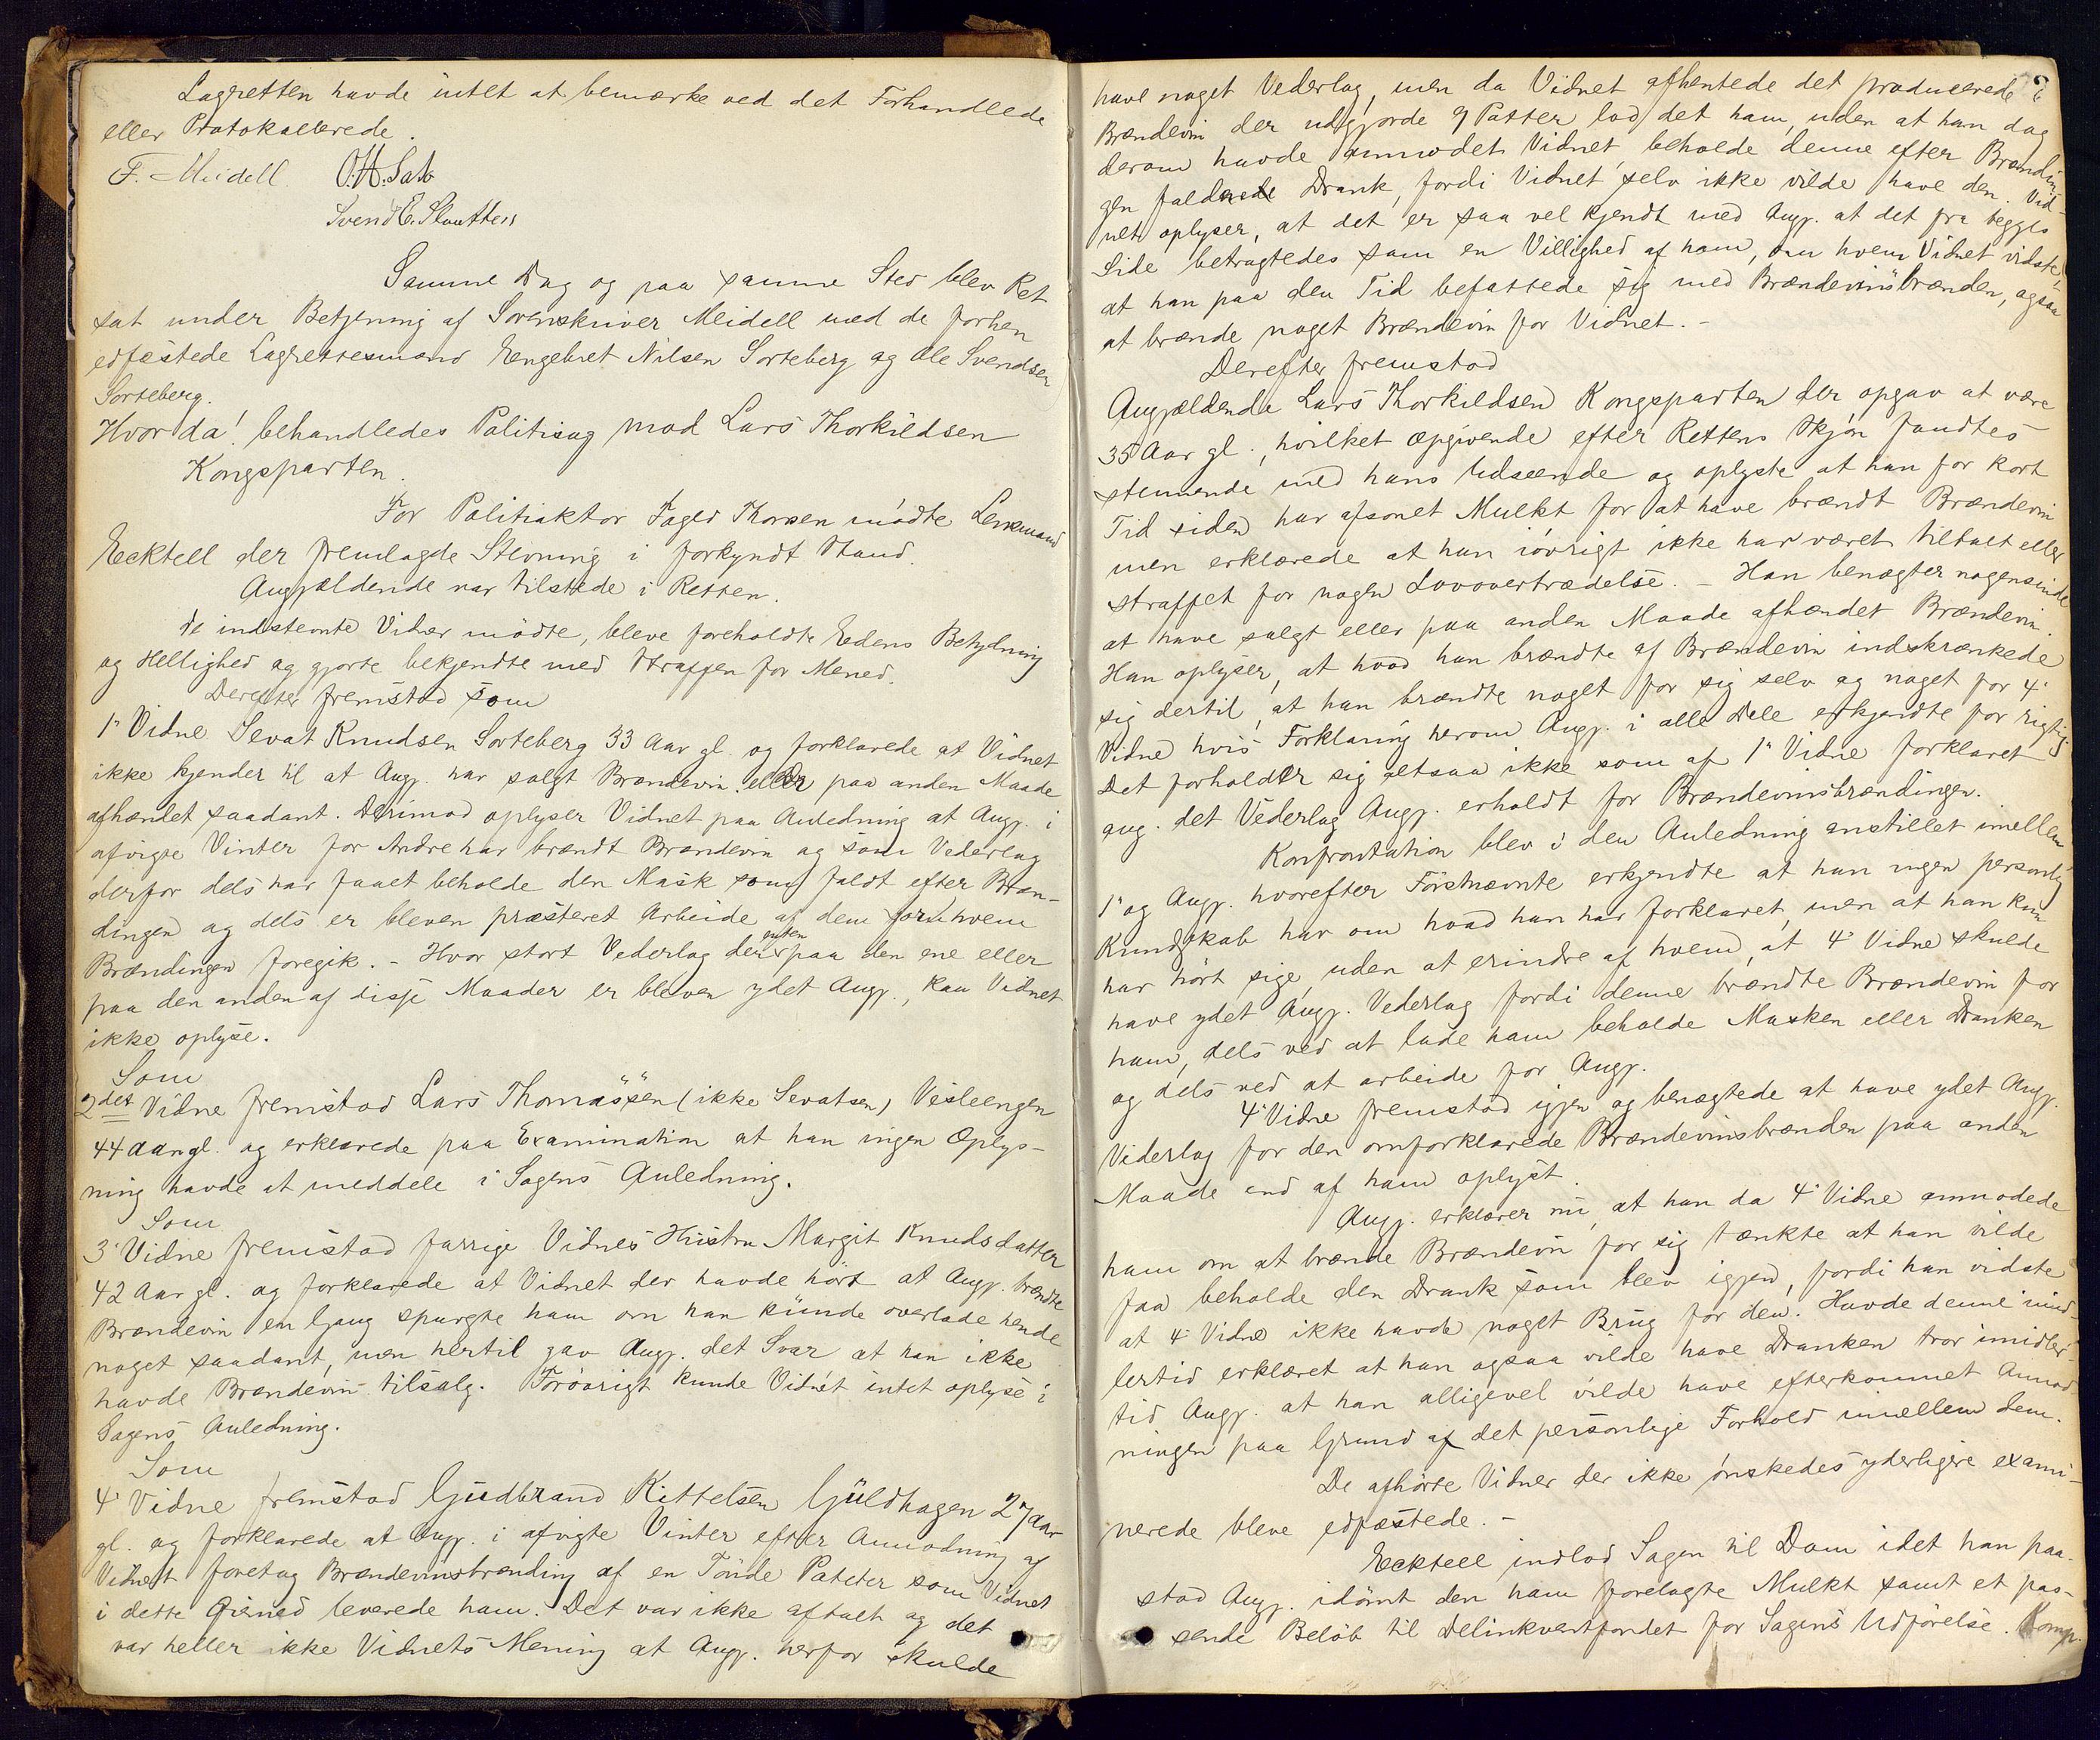 Lagretten havde intet at bemærke ved det Forhandlede
eller Protokollerede.
F. Meidell O.H. Sato
Svend E.
Samme Dag og paa samme Sted blev Ret
sat under Betjening af Sorenskriver Meidell med de forhen
edfæstede Lagrettesmænd Engebret Nilsen Sorteberg og Ole Svendsen
Sorteberg.
Hvor da! behandledes Politisag mod Lars Thorkildsen
Kongsparten.
For Politiaktor Foged Thorsen mødte Lensmand
Eecktell der fremlagde Stevning i forkyndt Stand.
Angjældende var tilstede i Retten.
De indstevnte Vidner mødte, bleve foreholdte Eedens Betydning
og Hellighed og gjorte bekjendte med Straffen for Mened.
Derefter fremstod som
1' Vidne Sevat Knudsen Sorteberg 33 Aar gl. og forklarede at Vidnet
ikke kjender til at Angj. har solgt Brændevin eller paa anden Maade
afhændet saadant. Derimod oplyser Vidnet paa Anledning at Angj. i
afvigte Vinter for Andre har brændt Brændevin og som Vederlag
derfor dels har faaet beholde den Mask som faldt efter Bræn-
dingen og dels er bleven præsteret Arbeide af dem for hvem
Brændingen foregik. - Hvor stort Vederlag der enten paa den ene eller
paa den anden af disse Maader er bleven ydet Angj., kan Vidnet
ikke oplyse.
Som
2det Vidne fremstod Lars Thomassen (ikke Sevatsen) Vesleengen
44 Aar gl. og erklærede paa Examination at han ingen Oplys-
ning havde at meddele i Sagens Anledning.
Som
3' Vidne fremstod forrige Vidnes Hustru Margit Knudsdatter
42 Aar gl. og forklarede at Vidnet der havde hørt at Angj. brændte
Brændevin en Gang spurgte ham om han kunde overlade hende
noget saadant, men hertil gav Angj. det Svar at han ikke
havde Brændevin tilsalg. Forøvrigt kunde Vidnet intet oplyse i
Sagens Anledning.
Som
4' Vidne fremstod Gudbrand Kittelsen Guldhagen 27 Aar
gl. og forklarede at Angj. i afvigte Vinter efter Anmodning af
Vidnet foretog Brændevinsbrænding af en Tønde Poteter som Vidnet
i dette Øiemed leverede ham. Det var ikke aftalt og det
var heller ikke Vidnets Mening at Angj. herfor skulde
have noget Vederlag, men da Vidnet afhentede det producerede
Brændevin der udgjorde 9 Potter lod det ham, uden at han dog
derom havde anmodet Vidnet, beholde denne efter Brændin-
gen faldne Drank, fordi Vidnet selv ikke vilde have den. Vid-
net oplyser, at det er saa vel kjendt med Angj. at det fra begges
Side betragtedes som en Villighed af ham, om hvem Vidnet vidste,
at han paa den Tid befattede sig med Brændevinsbrænden, ogsaa
at brænde noget Brændevin for Vidnet. -
Derefter fremstod
Angjældende Lars Thorkildsen Kongsparten der opgav at være
35 Aar gl., hvilket Opgivende efter Rettens Skjøn fandtes
stemmende med hans Udseende og oplyste at han for kort
Tid siden har afsonet Mulkt for at have brændt Brændevin
men erklærede at han iøvrigt ikke har været tiltalt eller
straffet for nogen Lovovertrædelse. - Han benægter nogensinde
at have solgt eller paa anden Maade afhændet Brændevin.
Han oplyser, at hvad han brændte af Brændevin indskrænkede
sig dertil, at han brændte noget for sig selv og noget for 4'
Vidne hvis Forklaring herom Angj. i alle Dele erkjendte for rigtig.
Det forholder sig altsaa ikke som af 1' Vidne forklaret
ang. det Vederlag Angj. erholdt for Brændevinsbrændingen.
Konfrontation blev i den Anledning anstillet imellem
1' og Angj. hvorefter Førstnævnte erkjendte at han ingen personlig
Kundskab har om hvad han har forklaret, men at han kun
har hørt sige, uden at erindre af hvem, at 4' Vidne skulde
have ydet Angj. Vederlag fordi denne brændte Brændevin for
ham, dels ved at lade ham beholde Masken eller Dranken
og dels ved at arbeide for Angj.
4' Vidne fremstod igjen og benægtede at have ydet Angj.
Vederlag for den omforklarede Brændevinsbrænden paa anden
Maade end af ham oplyst.
Angj. erklærer nu, at han da 4' Vidne anmodede
ham om at brænde Brændevin for sig tænkte at han vilde
faa beholde den Drank som blev igjen, fordi han vidste
at 4' Vidne ikke havde noget Brug for den. Havde denne imid-
lertid erklæret at han ogsaa vilde have Dranken tror imidler-
tid Angj. at han alligevel vilde have efterkommet Anmod-
ningen paa Grund af det personlige Forhold imellem dem.
De afhørte Vidner der ikke ønskedes yderligere exami-
nerede bleve edfæstede. -
Eecktell indlod Sagen til Dom idet han paa-
stod Angj. idømt den ham forelagte Mulkt samt et pas-
sende Beløb til Delinkventfondet for Sagens Udførelse. Komp.